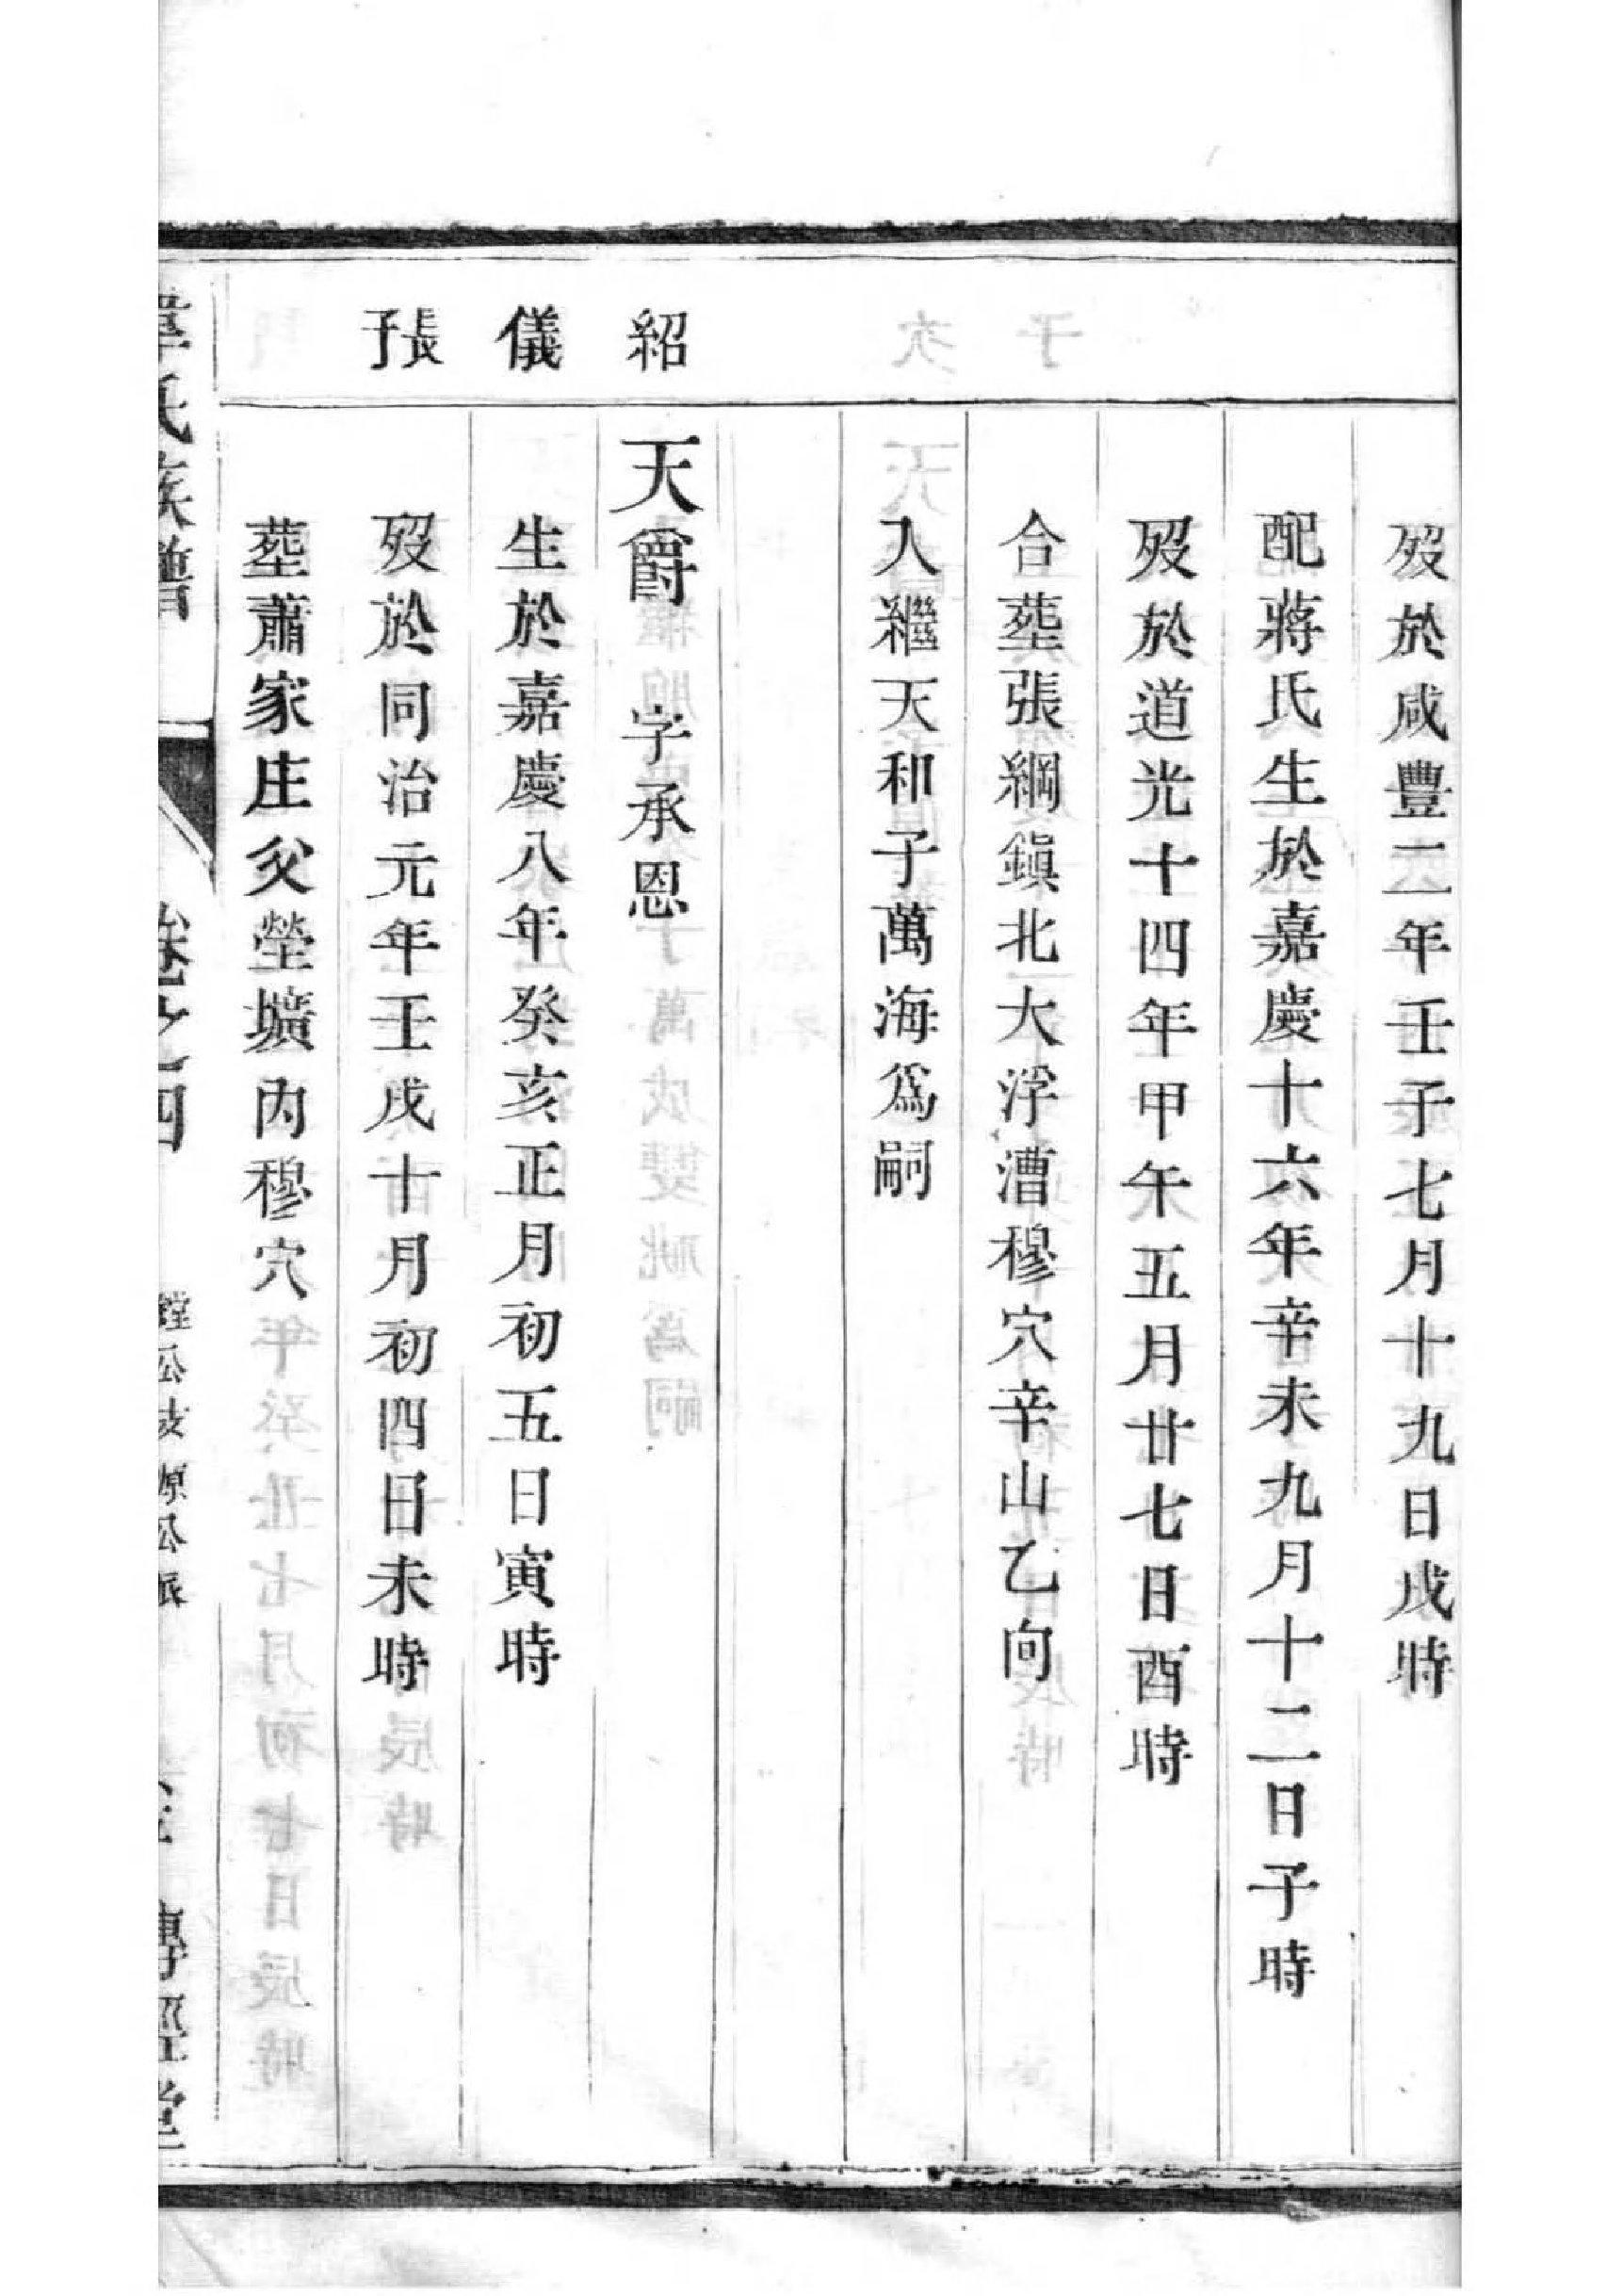 歿於咸豐二年壬子七月十九日戌時
配蔣氏生於嘉慶十六年辛未九月十二日子時
歿於道光十四年甲午五月廿七日酉時
合葬張綱鎮北大浮漕穆穴辛山乙向
入繼天和子萬海爲嗣
紹
天爵 字承恩
儀
生於嘉慶八年癸亥正月初五日寅時
張子
歿於同治元年壬戌十月初四日未時
葬蕭家庄父塋壙內穆穴
氏族譜 卷之四 公支源公派 傳經堂